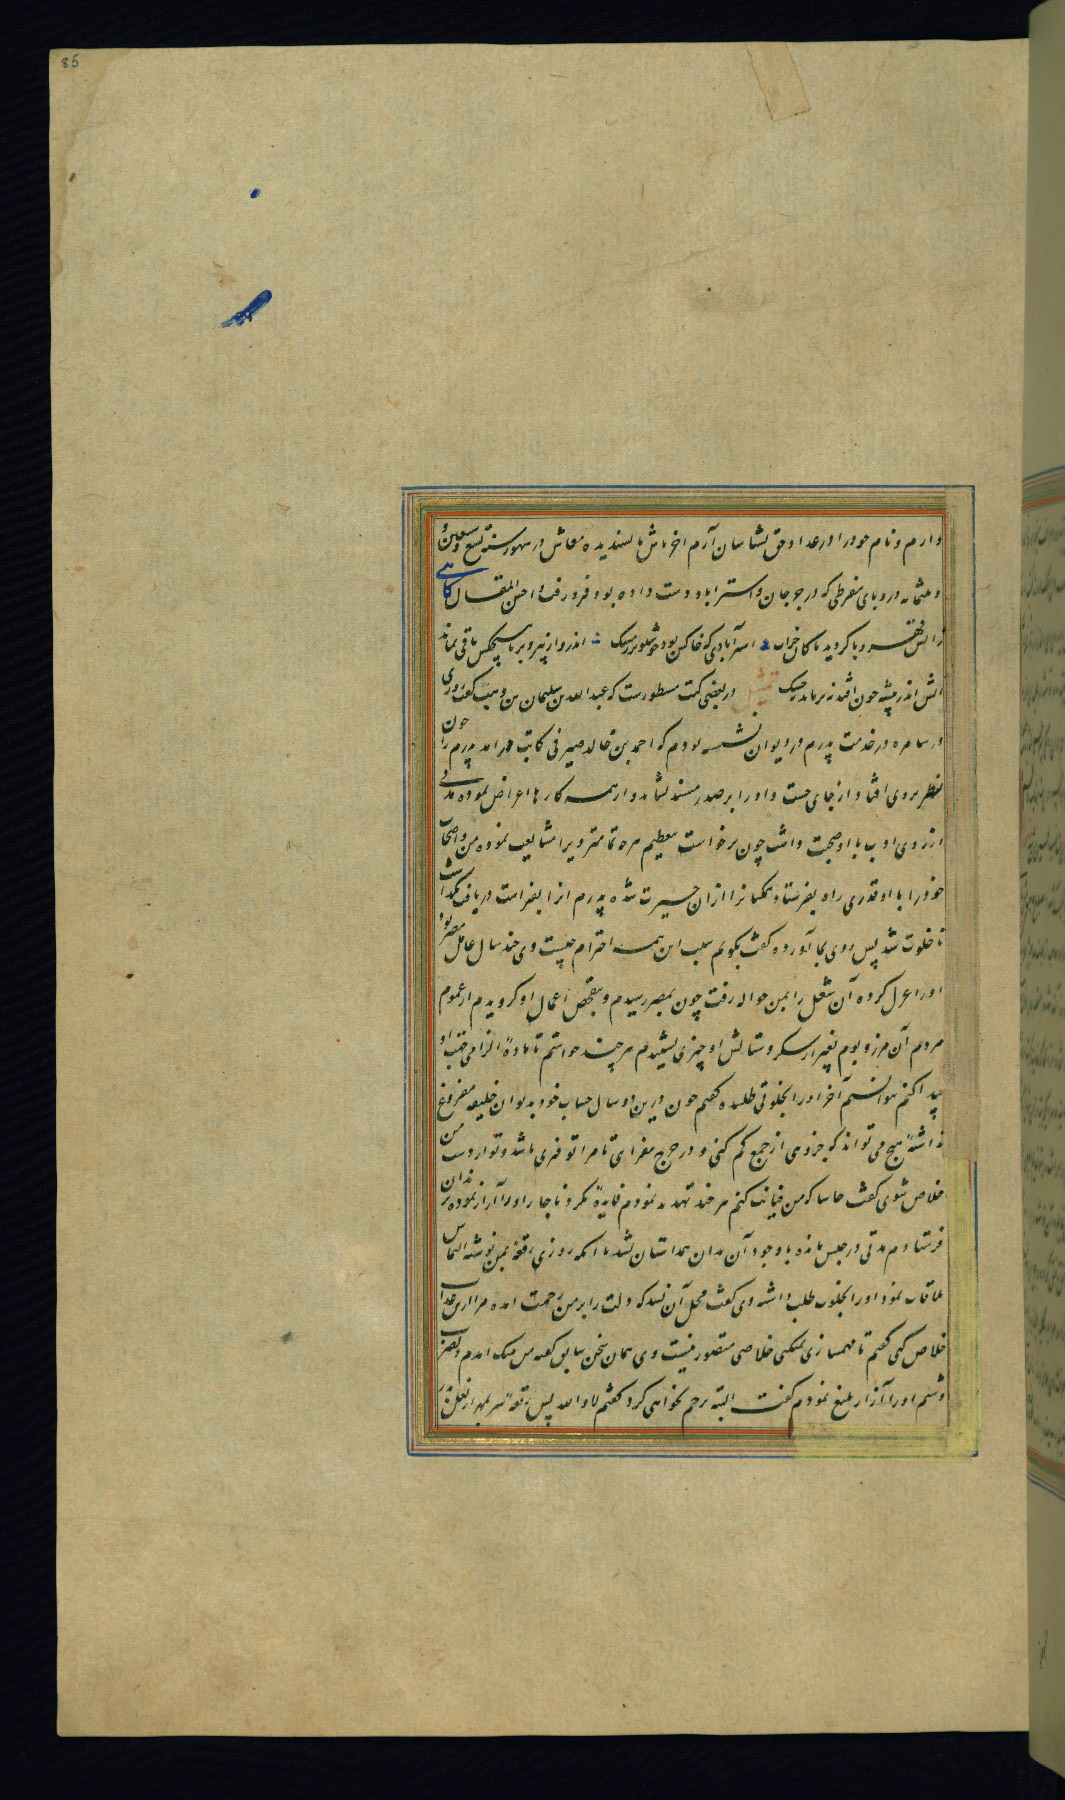 85
دارم و نام خود را در عداد حق نشاسان آرم آخر ماش ناپسندیده معاش در شهور سنه تسع و سبعین و
و ثلثمایه در وبای مفرطی که در جرجان و استراباد دست داده بود فرو رفت و احسن المقال کافی
خراب استرآبادی که خاکش بود خوشبوتر ز مشک اندرو از پیر و برنا هیچکس باقی نماند
آتش اندر بیشه چون افتد نه تر ماند نه خشک تمثیل در بعضی کتب مسطورست که عبدالله بن سلیمان بن وهب گفت روزی
در سامره در خدمت پدرم در دیوان نشسته بودم که احمد بن خالد صیرفی کاتب درآمد پدرم را چون
نظر بروی افتاد از جای جست و او را بر صدر مسند نشاند و از همه کارها اعراض نموده مدتی
از روی ادب با او صحبت داشت چون برخاست بتعظیم هرچه تمامتر ویرا مشایعت نموده من و اصحاب
خود را با او قدری راه بفرستاد همگنانرا ازان حیرت شد پدرم آنرا بفراست دریافت بگذاشت
تا خلوت شد پس روی بما آورده گفت بگویم سبب این همه احترام چیست وی چند سال عامل مصر بود
او را عزل کرده آن شغل را بمن حواله رفت چون بمصر رسیدم و بتفحص اعمال او گرویدم از عموم
مردم آن مرز و بوم بغیر از شکر و ستایش او چیزی نشنیدم هر چند خواستم تا ماده الزامی جهت او
پیدا کنم نتوانستم آخر او را بخلوتی طلبیده گفتم چون درین دو سال حساب خود بدیوان خلیفه مفروغ
نداشته هیچ می تواند که جزوی از جمع کم کنی و در خرج مفزای تا مرا توفیری باشد و تو از دست من
خلاص شوی گفت حاشا که من خیانت کنم هر چند تهدید نمودم فایده نکرد ناچار او را آزار نموده بزندان
فرستادم مدتی در حبس مانده با وجود آن بدان همداستان نشد تا آنکه روزی رقعه بمن نوشته التماس
ملاقات نمود او را بخلوت طلب داشته وی گفت محل آن نشد که دلت را بر من رحمت آمده مرا ازین عذاب
خلاص کنی گفتم تا مهمسازی نمیکنی خلاصی متصور نیست وی همان سخن سابق گفت من بتنگ آمدم و بضرب
و شتم او را آزار بلیغ نمودم گفت البته رحم نخواهی کرد گفتم لا والله پس رقعه سر بمهر از بغل بدر